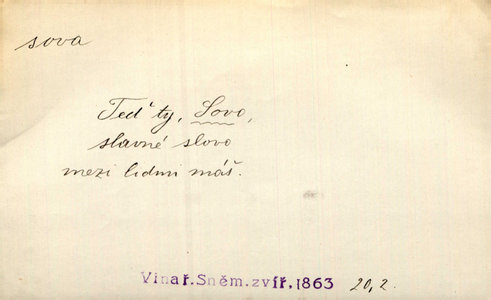 sova
Teď ty, Sovo,
slavné slovo
mezi lidmi máš.
Vinař.Sněm.zvíř.1863 20,2.